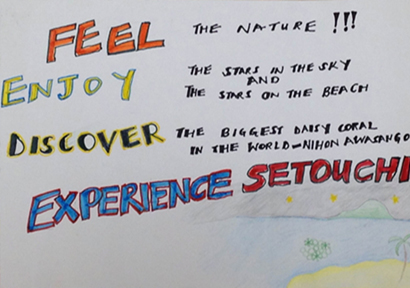 FEEL THE NATURE !!!
ENJOY THE STARS IN THE SKY
AND
THE STARS ON THE BEACH
DISCOVER THE BIGGEST DAISY CORAL
IN THE WORLD-NIHON AWASANGO
EXPERIENCE SETOUCHI